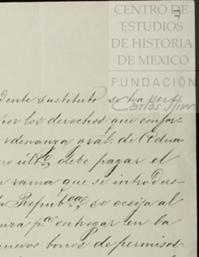 CENTRO DE
ESTUDIOS
DE HISTORIA
DE MEXICO
FUNDACIÓN
Carlos Slim
dente Sustituto se ha serv
por los derechos que confor
rdenanza gral. de Adua
ro ultº debe pagar el
rama que se introduz
Repubca se ocija al
nza pa entregar en la
nuevos bonos de permisos